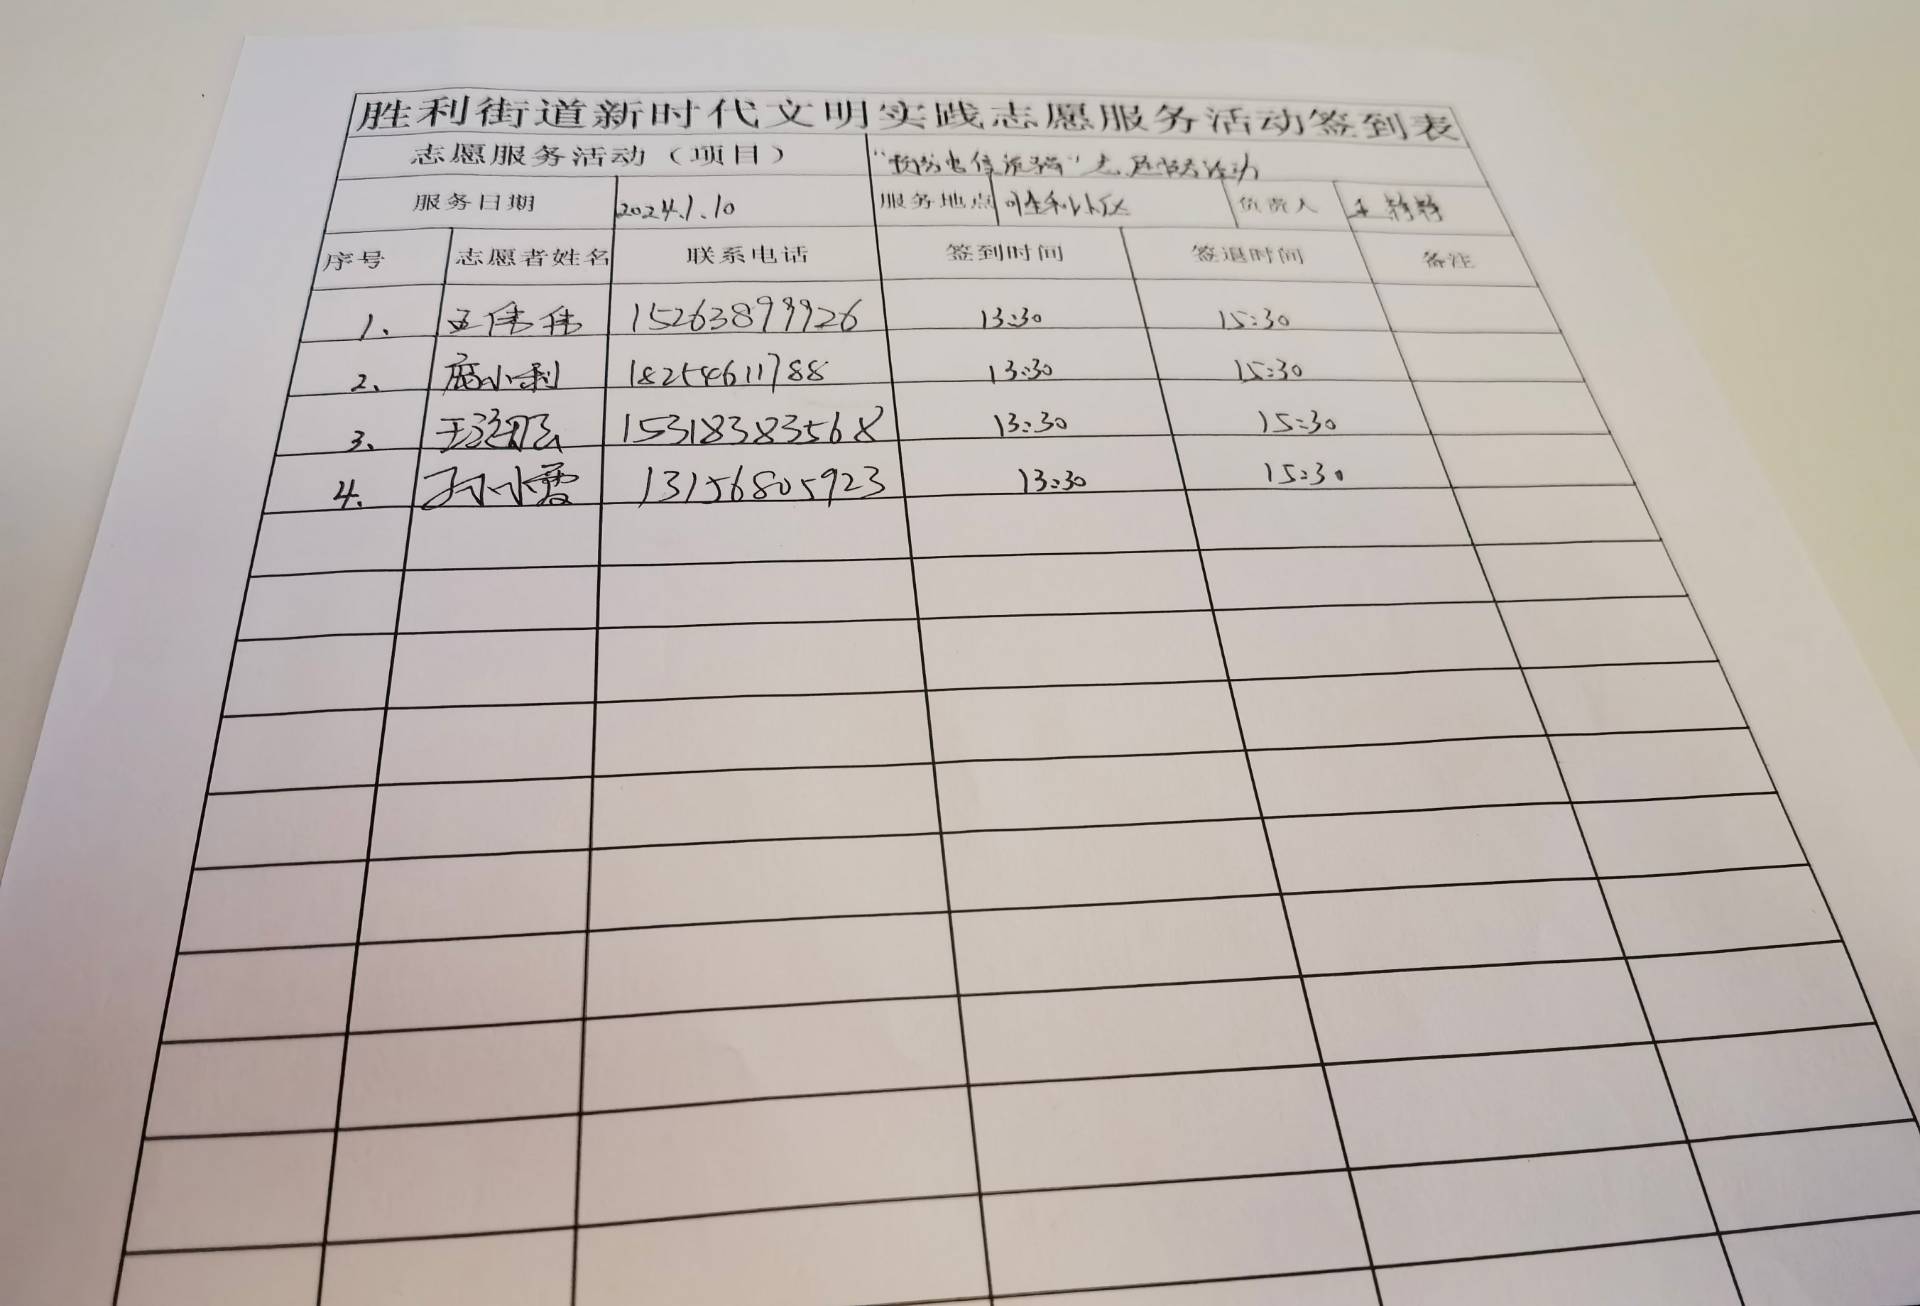 胜利街道新时代文明实践志愿服务活动签到表
志愿服务活动（项目） "预防电信诈骗"志愿服务活动
服务日期 2024.1.10 服务地点 小区 负责人
序号 志愿者姓名 联系电话 签到时间 签退时间 备注
1、 王伟伟 15263899926 13:30 15:30
2、 小利 18254611788 13:30 15:30
3、 王 15318383568 13:30 15:30
4. 孙小霞 13156805923 13:30 15:30